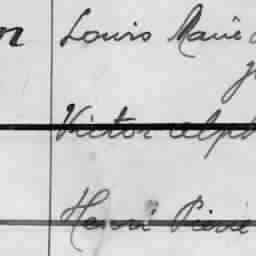 Louis Marie
Victor Alph
Henri Pierre